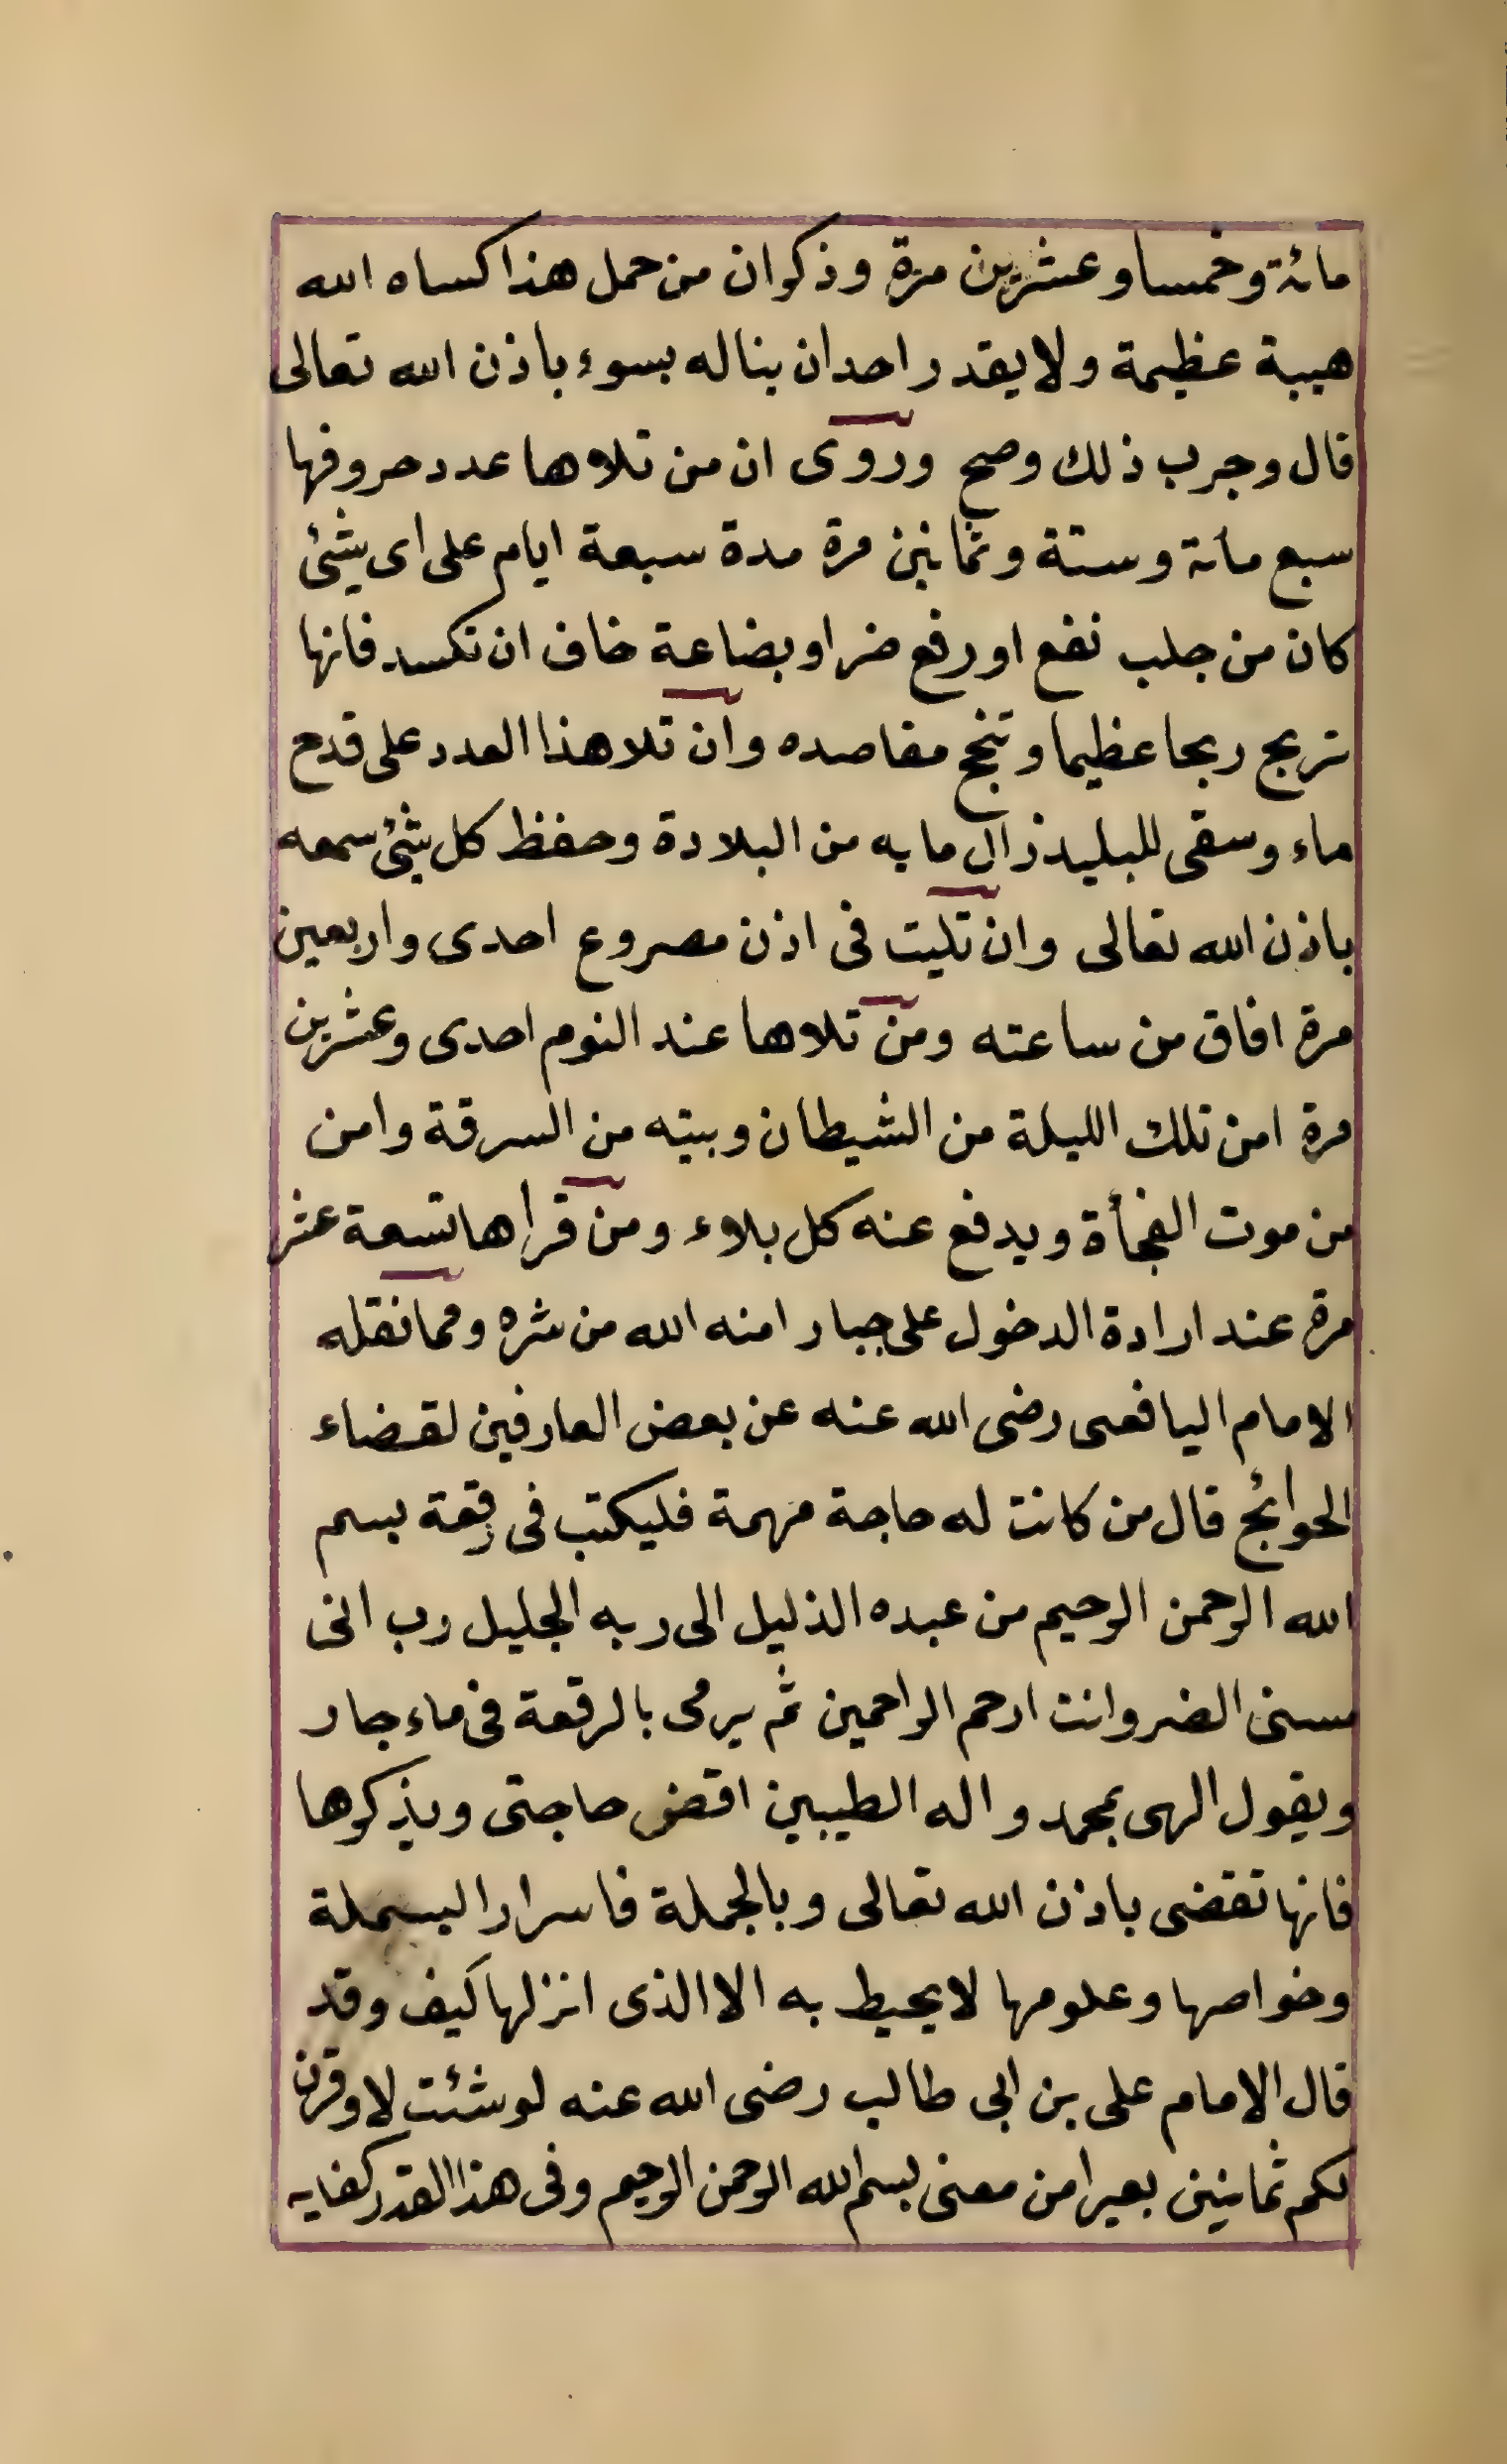 مائة وخمسا وعشرين مرة وذكر ان من حمل هذا كساه الله
هيبة عظيمة ولا يقدر احد ان يناله بسوء باذن الله تعالى
قال وجرب ذلك وصح وروى ان من تلاها عدد حروفها
سبع مائة وستة وثمانين مرة مدة سبعة ايام على اى شئ
كان من جلب نفع او رفع ضر او بضاعة خاف ان تكسد فانها
تربح ربحا عظيما وتنجح مقاصده وان تلا هذا العدد على قدح
ماء وسقى للبليد زال ما به من البلادة وحفظ كل شئ سمعه
باذن الله تعالى وان تليت فى اذن مصروع احدى واربعين
مرة افاق من ساعته ومن تلاها عند النوم احدى وعشرين
مرة امن تلك الليلة من الشيطان وبيته من السرقة وامن
من موت الفجأة ويدفع عنه كل بلاء ومن قراها تسعة عشر
مرة عند ارادة الدخول على جبار امنه الله من شره ومما نقله
الامام اليافعى رضى الله عنه عن بعض العارفين لقضاء
الحوائج قال من كانت له حاجة مهمة فليكتب فى رقعة بسم
الله الرحمن الرحيم من عبده الذليل الى ربه الجليل رب انى
مسنى الضر وانت ارحم الراحمين ثم يرمى بالرقعة فى ماء جار
ويقول الهى بمحمد واله الطيبين اقض حاجتى ويذكرها
فانها تقضى باذن الله تعالى وبالجملة فاسرار البسملة
وخواصها وعلومها لا يحيط به الا الذى انزلها كيف وقد
قال الامام على بن ابى طالب رضى الله عنه لو شئت لاوقرن
لكم ثمانين بعيرا من معنى بسم الله الرحمن الرحيم وفى هذا القدر كفايه